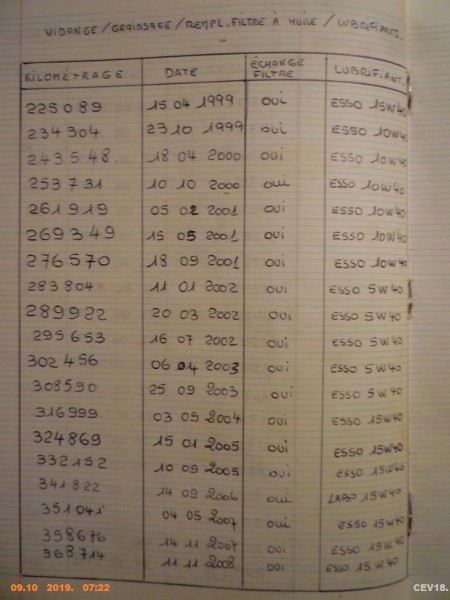 VIDANGE/GRAISSAGE/REMPL. FILTRE À HUILE/LUBRIFIANTS.
KILOMÉTRAGE DATE ÉCHANGE FILTRE LUBRIFIANT
225089 15 04 1999 OUI ESSO 15W40
234304 23 10 1999 OUI ESSO 10W40
243548. 18 04 2000 OUI ESSO 10W40
253731 10 10 2000 OUI ESSO 10W40
261919 05 02 2001 OUI ESSO 10W40
269349 15 05 2001 OUI ESSO 10W40
276570 18 09 2001 OUI ESSO 10W40
283804 11 01 2002 OUI ESSO 5W40
289922 20 03 2002 OUI ESSO 5W40
295653 16 07 2002 OUI ESSO 5W40
302456 06 04 2003 OUI ESSO 5W40
308590 25 09 2003 OUI ESSO 5W40
316999 03 05 2004 OUI ESSO 15W40
324869 15 01 2005 OUI ESSO 15W40
332152 10 09 2005 OUI ESSO 15W40
341822 14 09 2006 OUI 15W40
351041 04 05 2007 OUI ESSO 15W40
358676 14 11 2007 OUI ESSO 15W40
368714 11 11 2008 OUI ESSO 15W40
09.10 2019. 07:22 CEV18.